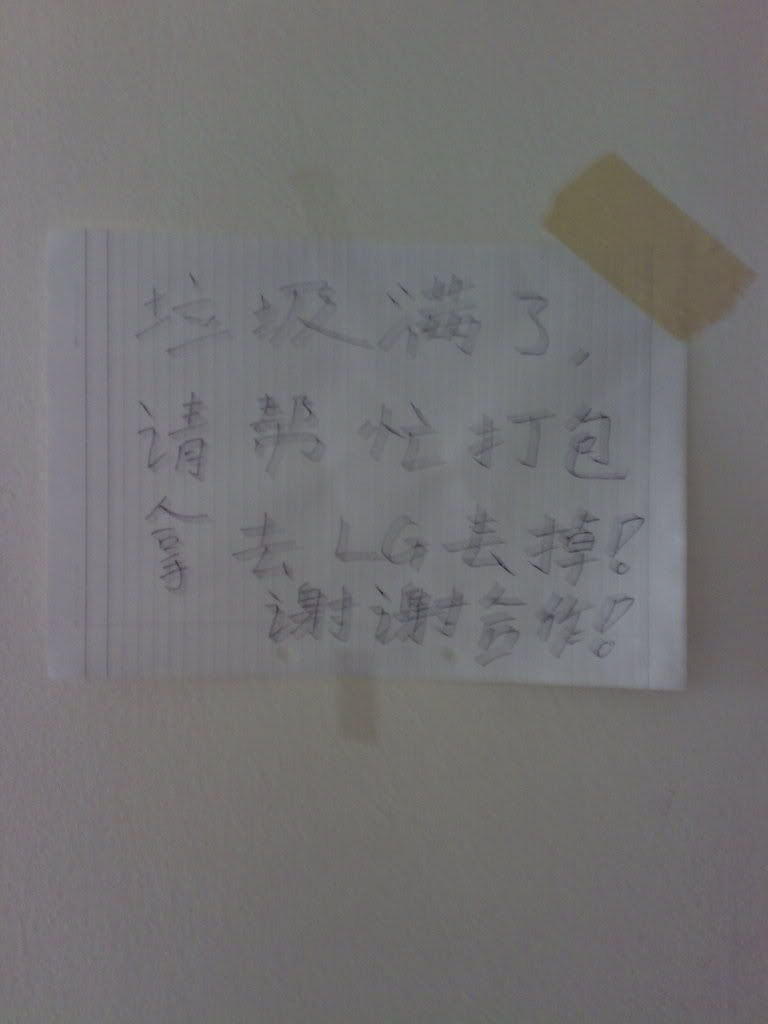 垃圾满了.
请帮忙打包
拿去LG丢掉!
谢谢合作!